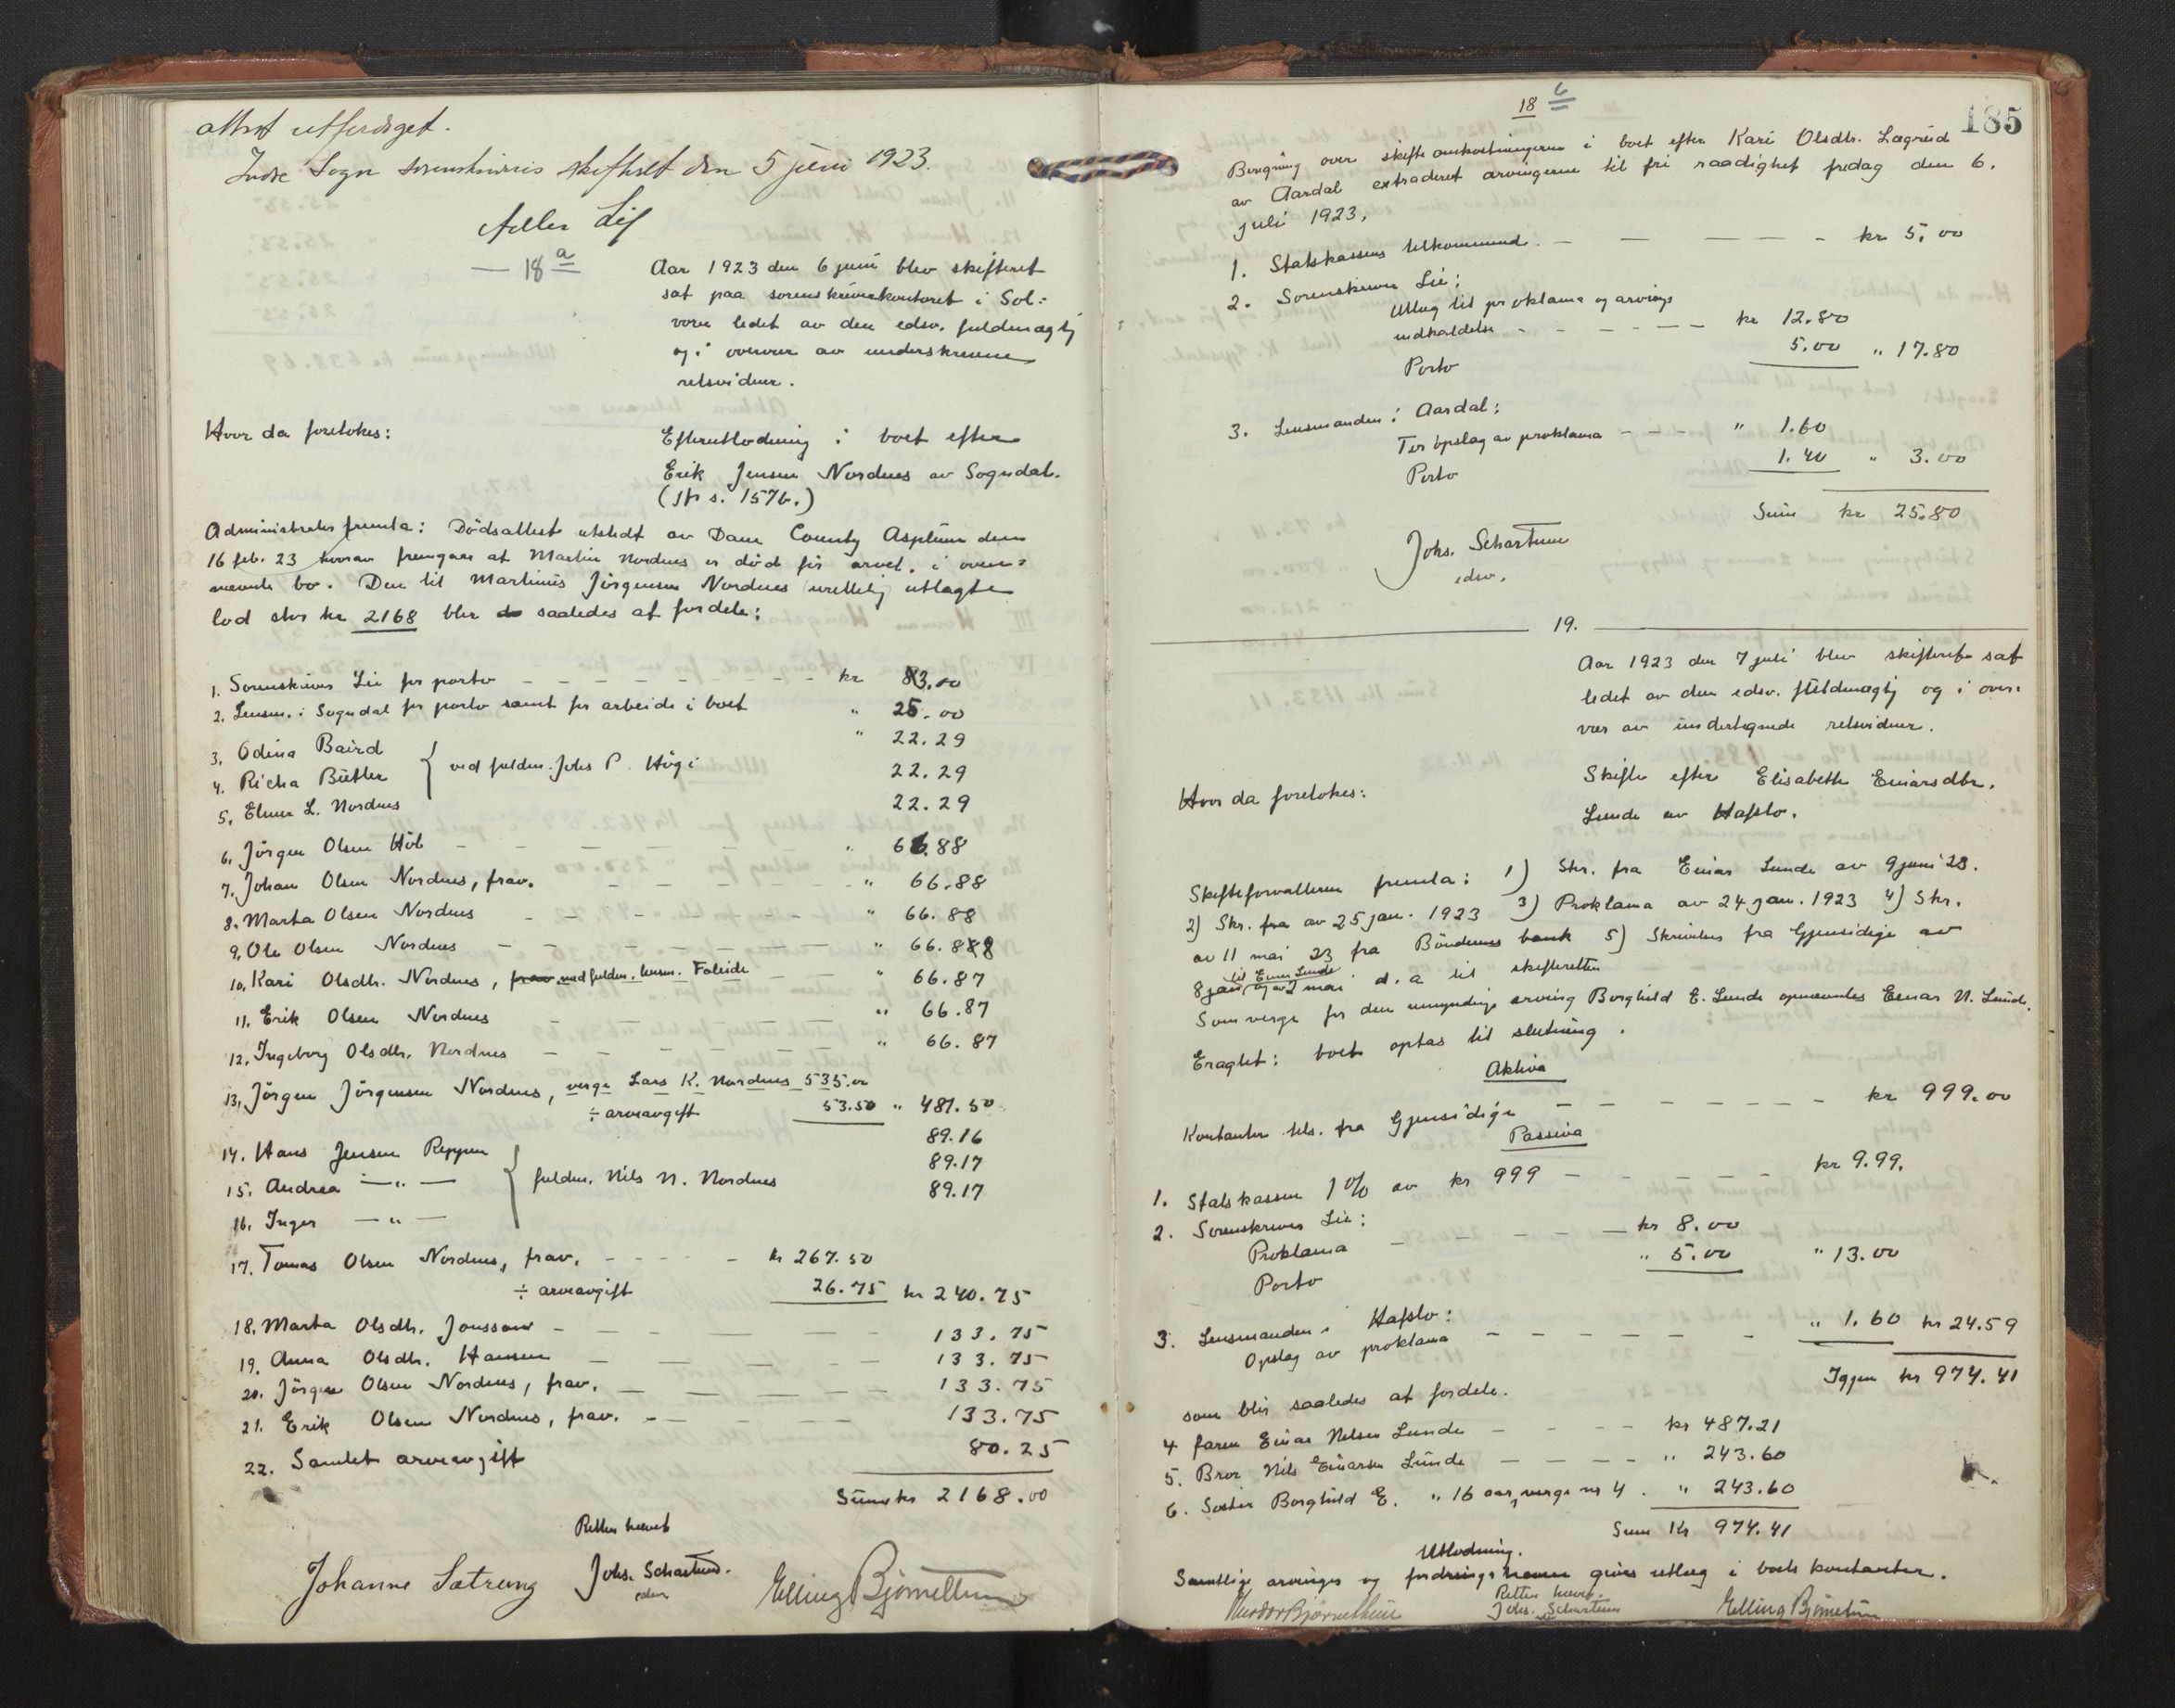 attest utferdiget.
Indre Sogn sorenskriveris skifteret den 5 juni 1923.
Atler Lif
— 18 a
Aar 1923 den 6 juni blev skifteret
sat paa sorenskriverkontoret i Sol=
vorn ledet av den edsv. fuldmægtig
og i overvær av underskrevne
retsvidner.
Hvor da foretokes:
Efterutlodning i boet efter
Erik Jensen Nordnes av Sogndal.
(Jfr s. 157b.)
Administrator fremla: Dödsattest utstedt av Dane County Asylum den
16 feb. 23 hvorav fremgaar at Martin Nordnes er död för arvel. i oven=
nævnte bo. Den til Martinus Jörgensen Nordnes urettelig utlagte
lod stor kr 2168 blir saaledes at fordele:
1. Sorenskriver Lie for porto - - - - - - - - - kr 83.00
2. Lensm. i Sogndal for porto samt for arbeide i boet " 25.00
3. Odina Baird " 22.29
4. Richa Butler } ved fuldm. Johs P. Høgi 22.29
5. Elmer L. Nordnes 22.29
6. Jörgen Olsen Höl - - - - - - " 66.88
7. Johan Olsen Nordnes, frav. - - - - - " 66.88
8. Marta Olsen Nordnes - - - - - - " 66.88
9. Ole Olsen Nordnes - - - - - - - " 66.88
10. Kari Olsdtr. Nordnes, frav. ved fuldm. lensm. Faleide - - " 66.87
11. Erik Olsen Nordnes - - - - - - " 66.87
12. Ingeborg Olsdtr. Nordnes - - - - - - " 66.87
13. Jörgen Jörgensen Nordnes, verge Lars K. Nordnes 535.00
÷ arveavgift 53.50 " 481.50
14. Hans Jensen Reppen 89.16
15. Andrea — " — } fuldm. Nils N. Nordnes 89.17
16. Inger — " — 89.17
17. Tomas Olsen Nordnes, frav. - - - - - kr 267.50
÷ arveavgift 26.75 kr 240.75
18. Marta Olsdtr. Jonsson - - - - - - 133.75
19. Anna Olsdtr. Hansen - - - - - - 133.75
20. Jörgen Olsen Nordnes, frav. - - - - - 133.75
21. Erik Olsen Nordnes, frav. - - - - - 133.75
22. Samlet arveavgift 80.25
Sum kr 2168.00
Retten hævet
Johanne Sætrang Johs. Schartum. Elling Bjørnetun
edsv
18 b
185
Beregning over skifteomkostningerne i boet efter Kari Olsdtr. Lægreid
av Aardal extraderet arvingerne til fri raadighet fredag den 6.
juli 1923.
1. Statskassens tilkommende - - - - - kr 5.00
2. Sorenskriver Lie:
Utlæg til proklama og arvings
indkaldelse - - - - - - kr 12.80
Porto 5.00 " 17.80
3. Lensmanden i Aardal:
For opslag av proklama - - - " 1.60
Porto 1.40 " 3.00
Sum kr 25.80
Johs. Schartum
edsv.
19.
Aar 1923 den 7 juli blev skifteret sat
ledet av den edsv. fuldmægtig og i over=
vær av undertegnede retsvidner.
Hvor da foretokes:
Skifte efter Elisabeth Einarsdtr.
Lunde av Hafslo.
Skifteforvalteren fremla: 1) Skr. fra Einar Lunde av 9 juni 23.
2) Skr. fra av 25 jan. 1923 3) Proklama av 24 jan. 1923 4) Skr.
av 11 mai 23 fra Böndernes bank 5) Skrivelser fra Gjensidige av
til Einar Lunde
8 jan. og av 2 mai d. a. til skifteretten
Som verge for den umyndige arving Borghild E. Lunde opnævntes Einar N. Lunde.
Eragtet: boet optas til slutning.
Aktiva
Kontanter tils. fra Gjensidige - - - - - - - kr 999.00
Passiva
1. Statskassen 1% av kr 999 - - - - - - kr 9.99.
2. Sorenskriver Lie:
Proklama - - - - - - kr 8.00
Porto " 5.00 " 13.00
3. Lensmanden i Hafslo:
Opslag av proklama - - - - - - " 1.60 kr 24.59
Igjen kr 974.41
som blir saaledes at fordele.
4 faren Einar Nilsen Lunde - - - - kr 487.21
5. Bror Nils Einarsen Lunde - - - - " 243.60
6. Søster Borghild E. " 16 aar, verge nr 4. " 243.60
Sum Kr 974.41
Utlodning.
Samtlige arvinger og fordringshavere gives utlæg i boets kontanter.
Retten hævet.
Theodor Bjørnethun Johs. Schartum Elling Bjørnetun